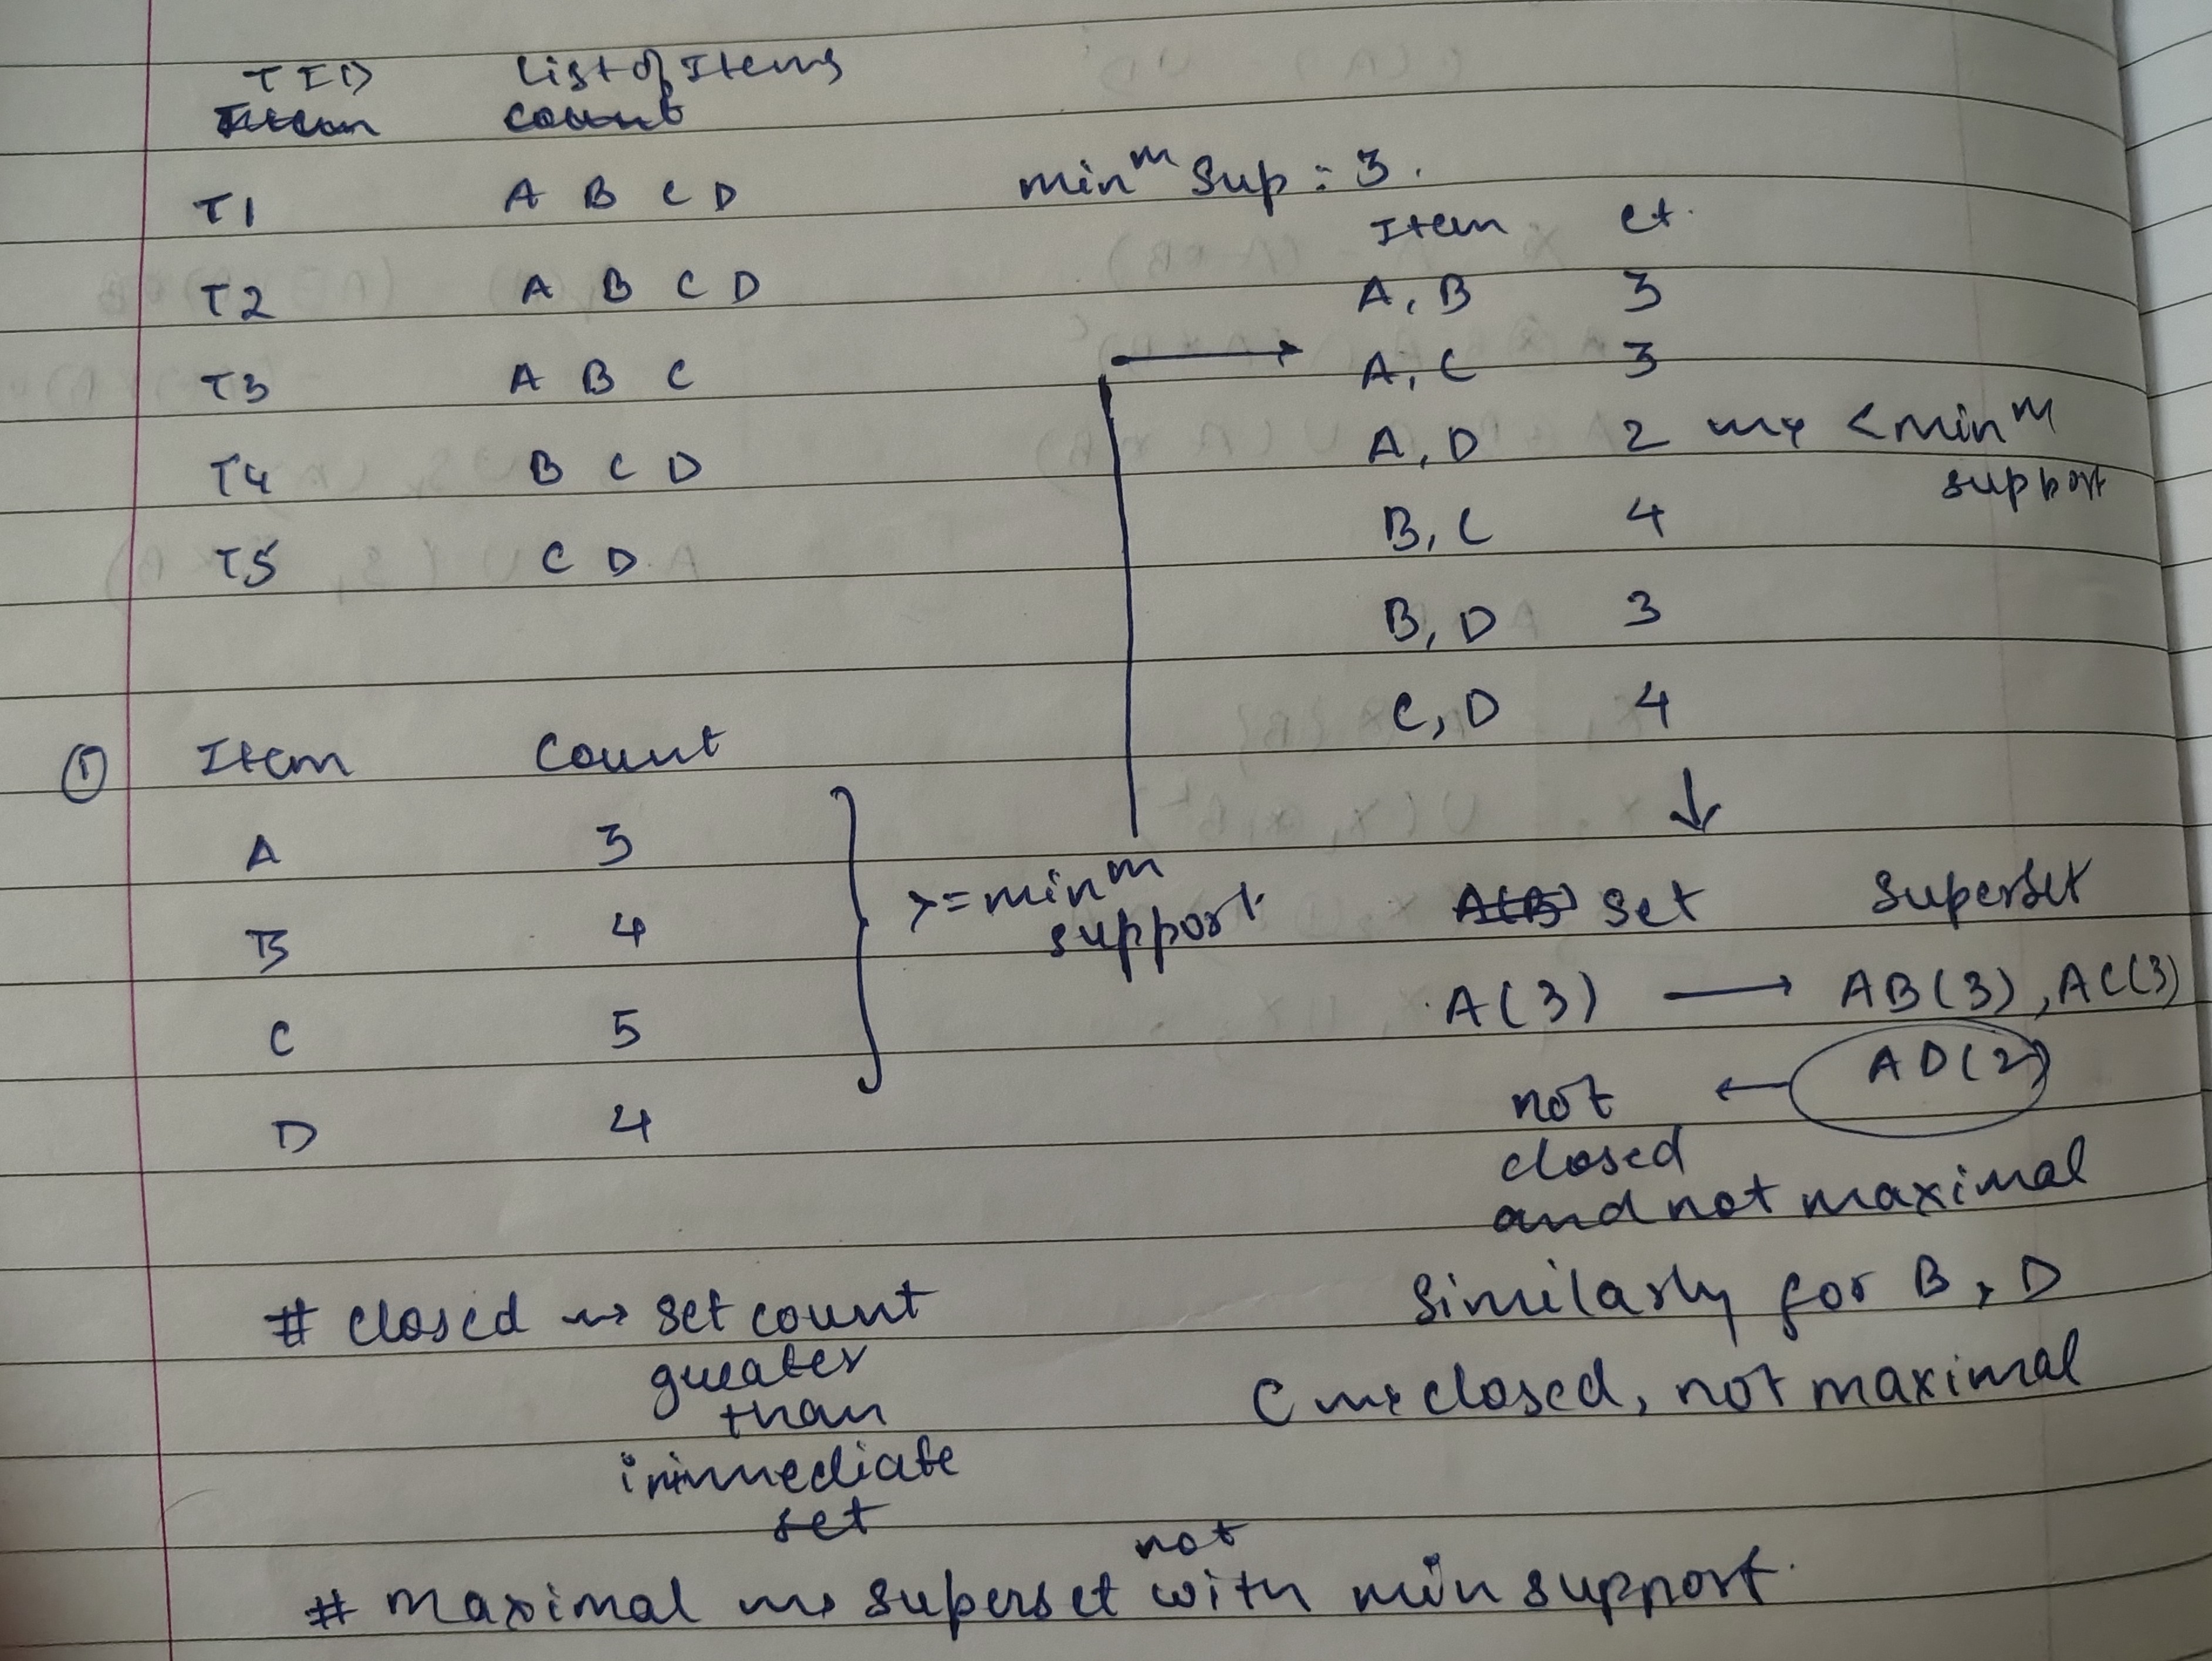 TID List of Items
Item Count
T1 A B C D
T2 A B C D
T3 A B C
T4 B C D
T5 C D.
min^m Sup : 3.
Item ct.
A, B 3
A, C 3
A, D 2 ~> < min^m
support
B, C 4
B, D 3
C, D 4
↓
① Item Count
A 3
B 4
C 5
D 4
>= min^m
support
A(B) set Superset
A(3) → AB(3), AC(3)
not ← AD(2)
closed
and not maximal
Similarly for B, D
C ~> closed, not maximal
# closed ~> set count
greater
than
immediate
set
not
# maximal ~> superset with min support.